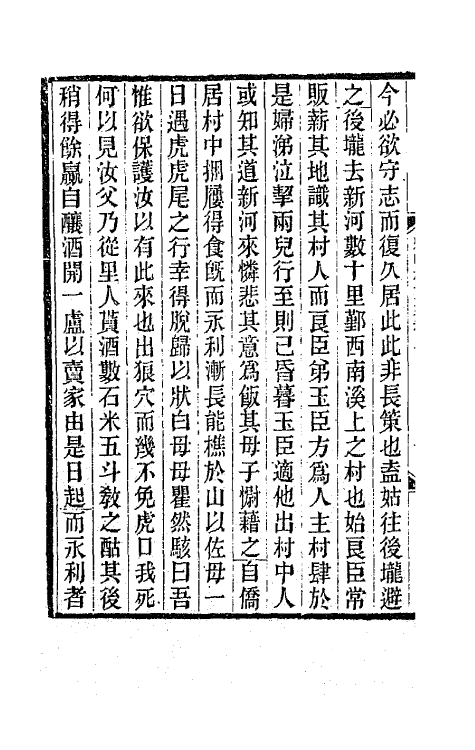 今必欲守志而復久居此此非長策也盍姑往後壠避
之後壠去新河數十里鄞西南溪上之村也始良臣常
販薪其地識其村人而良臣弟玉臣方為人主村肆於
是婦涕泣挈兩兒行至則已昏暮玉臣適他出村中人
或知其道新河來憐悲其意為飯其母子慰藉之自僑
居村中捆屨得食旣而永利漸長能樵於山以佐母一
日遇虎虎尾之行幸得脫歸以狀白母母瞿然駭曰吾
惟欲保護汝以有此來也出狼穴而幾不免虎口我死
何以見汝父乃從里人貰酒數石米五斗敎之酤其後
稍得餘贏自釀酒開一盧以賣家由是日起而永利者